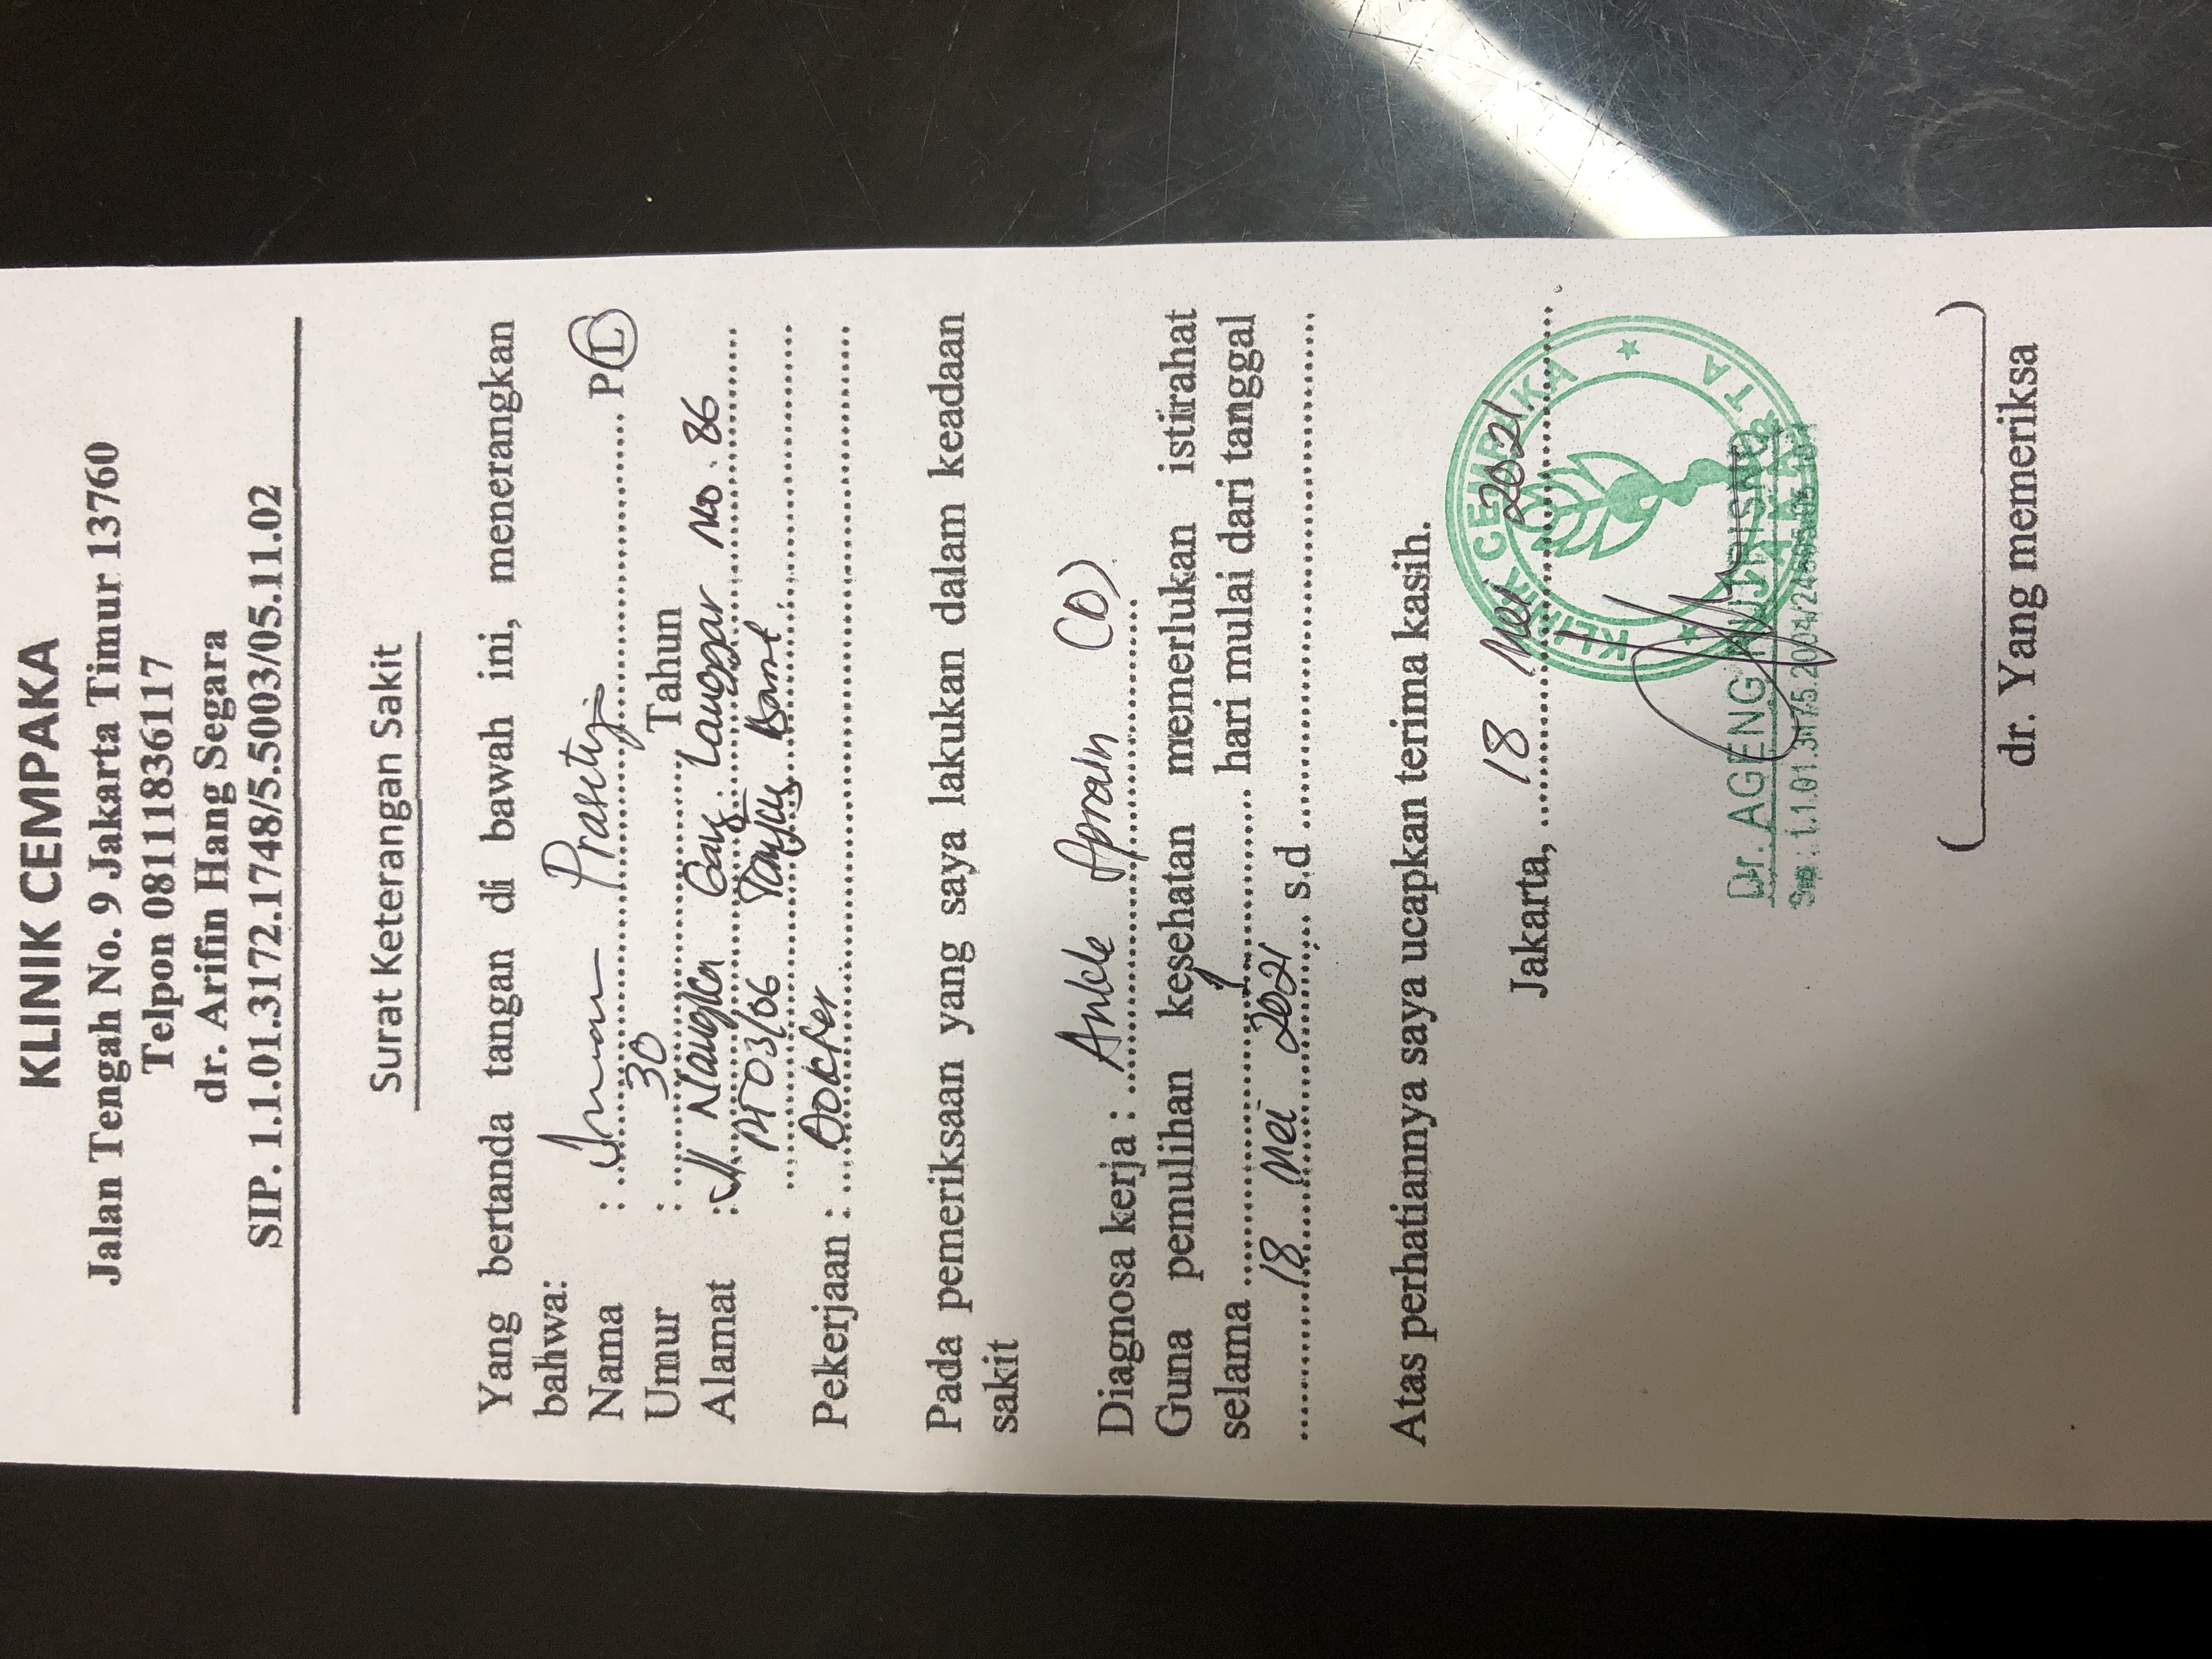 KLINIK CEMPAKA
Jalan Tengah No. 9 Jakarta Timur 13760
Telpon 08111836117
dr. Arifin Hang Segara
SIP. 1.1.01.3172.1748/5.5003/05.11.02
Surat Keterangan Sakit
Yang bertanda tangan di bawah ini, menerangkan
bahwa:
Nama : Prasetyo P/L
Umur : 30 Tahun
Alamat : Jl Nangka Gang. Langgar No. 86
RT 03/06 Tanjung Barat.
Pekerjaan : Dokter
Pada pemeriksaan yang saya lakukan dalam keadaan
sakit
Diagnosa kerja : Ankle Sprain (D).
Guna pemulihan kesehatan memerlukan istirahat
selama 1 hari mulai dari tanggal
18 Mei 2021 s.d
Atas perhatiannya saya ucapkan terima kasih.
Jakarta, 18 Mei 2021
KLINIK CEMPAKA
JAKARTA
Dr. AGENG SUTRISNO
Sip : 
( )
dr. Yang memeriksa